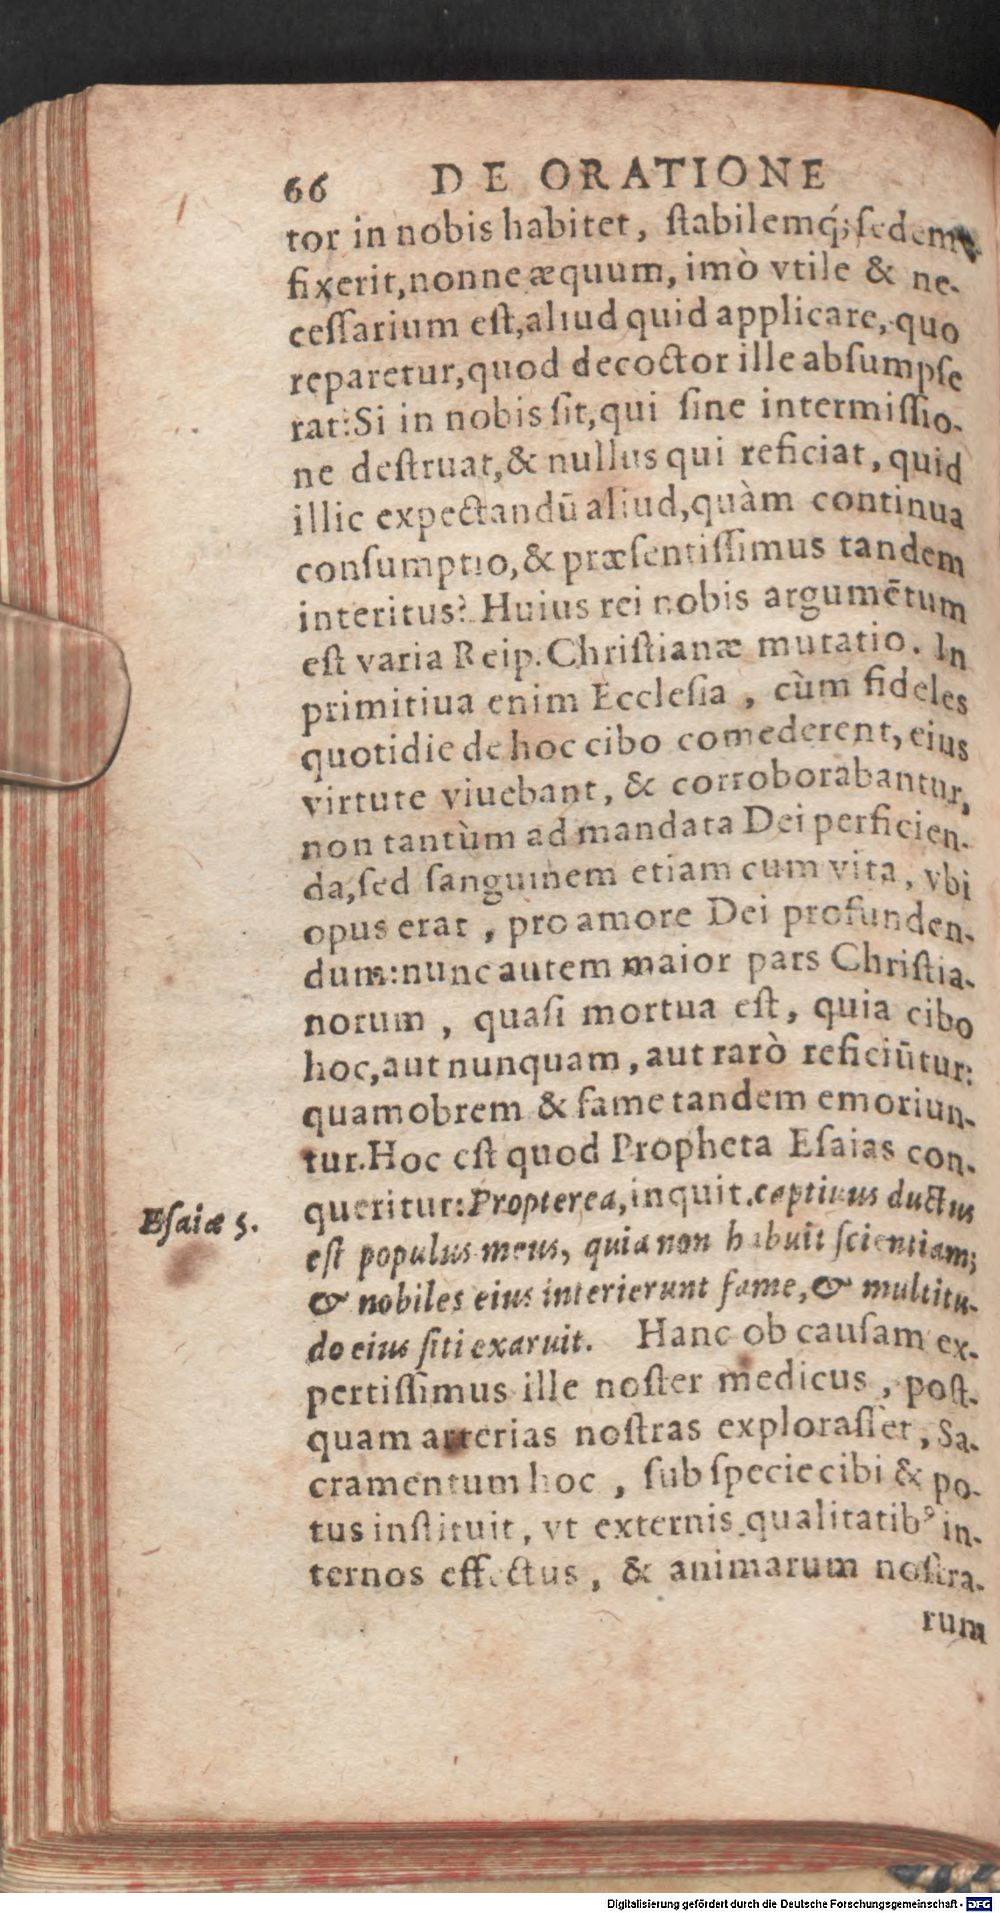 66 DE ORATIONE
tor in nobis habitet, ſtabilemq́; ſedem
fixerit, nonne æquum, imò vtile & ne-
ceſſarium eſt, aliud quid applicare, quo
reparetur, quod decoctor ille abſumpſe
rat: Si in nobis ſit, qui ſine intermiſſio-
ne deſtruat, & nullus qui reficiat, quid
illic expectandū aliud, quàm continua
conſumptio, & præſentiſſimus tandem
interitus? Huius rei nobis argumētum
eſt varia Reip. Chriſtianæ mutatio. In
primitiua enim Eccleſia, cùm fideles
quotidie de hoc cibo comederent, eius
virtute viuebant, & corroborabantur,
non tantùm ad mandata Dei perficien-
da, ſed ſanguinem etiam cum vita, vbi
opus erat, pro amore Dei profunden-
dum: nunc autem maior pars Chriſtia-
norum, quaſi mortua eſt, quia cibo
hoc, aut nunquam, aut rarò reficiūtur:
quamobrem & fame tandem emoriun-
tur. Hoc eſt quod Propheta Eſaias con-
queritur: Propterea, inquit. captiuus ductus
Eſaiæ 5.
eſt populus meus, quia non habuit ſcientiam;
& nobiles eius interierunt fame, & multitu-
do eius ſiti exaruit. Hanc ob cauſam ex-
pertiſſimus ille noſter medicus, poſt-
quam arterias noſtras exploraſſet, Sa-
cramentum hoc, ſub ſpecie cibi & po-
tus inſtituit, vt externis qualitatibꝰ in-
ternos effectus, & animarum noſtra-
rum
Digitalisierung gefördert durch die Deutsche Forschungsgemeinschaft - DFG